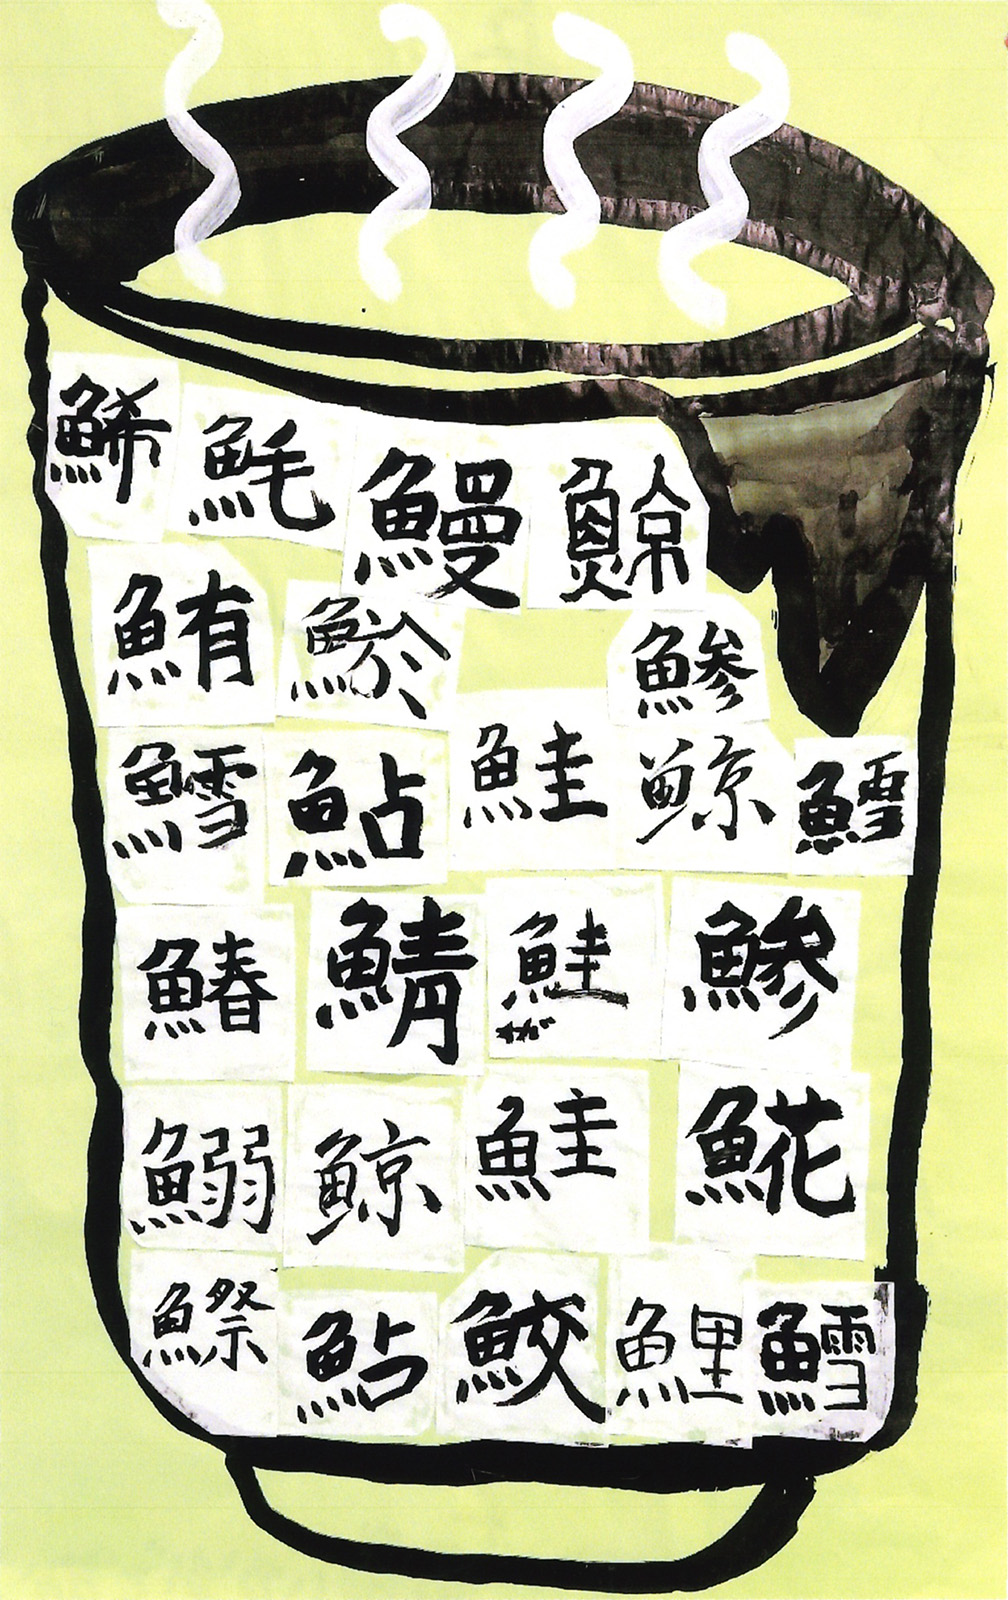 鯑 魹 鰻 鯨
鮪 鯵
鱈 鮎 鮭 鯨 鱈
鰆 鯖 鮭 鯵
鰯 鯨 鮭 𩸽
鰶 鮎 鮫 鯉 鱈